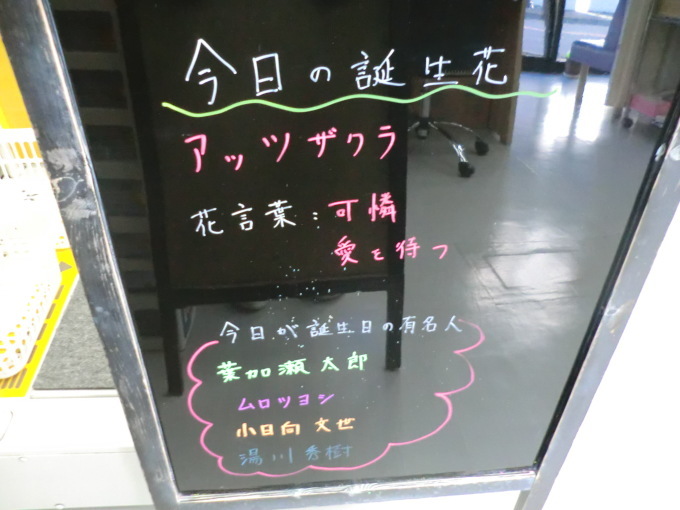 今日の誕生花
アッツザクラ
花言葉:可憐
愛を待つ
今日が誕生日の有名人
葉加瀬太郎
ムロツヨシ
小日向文世
湯川秀樹